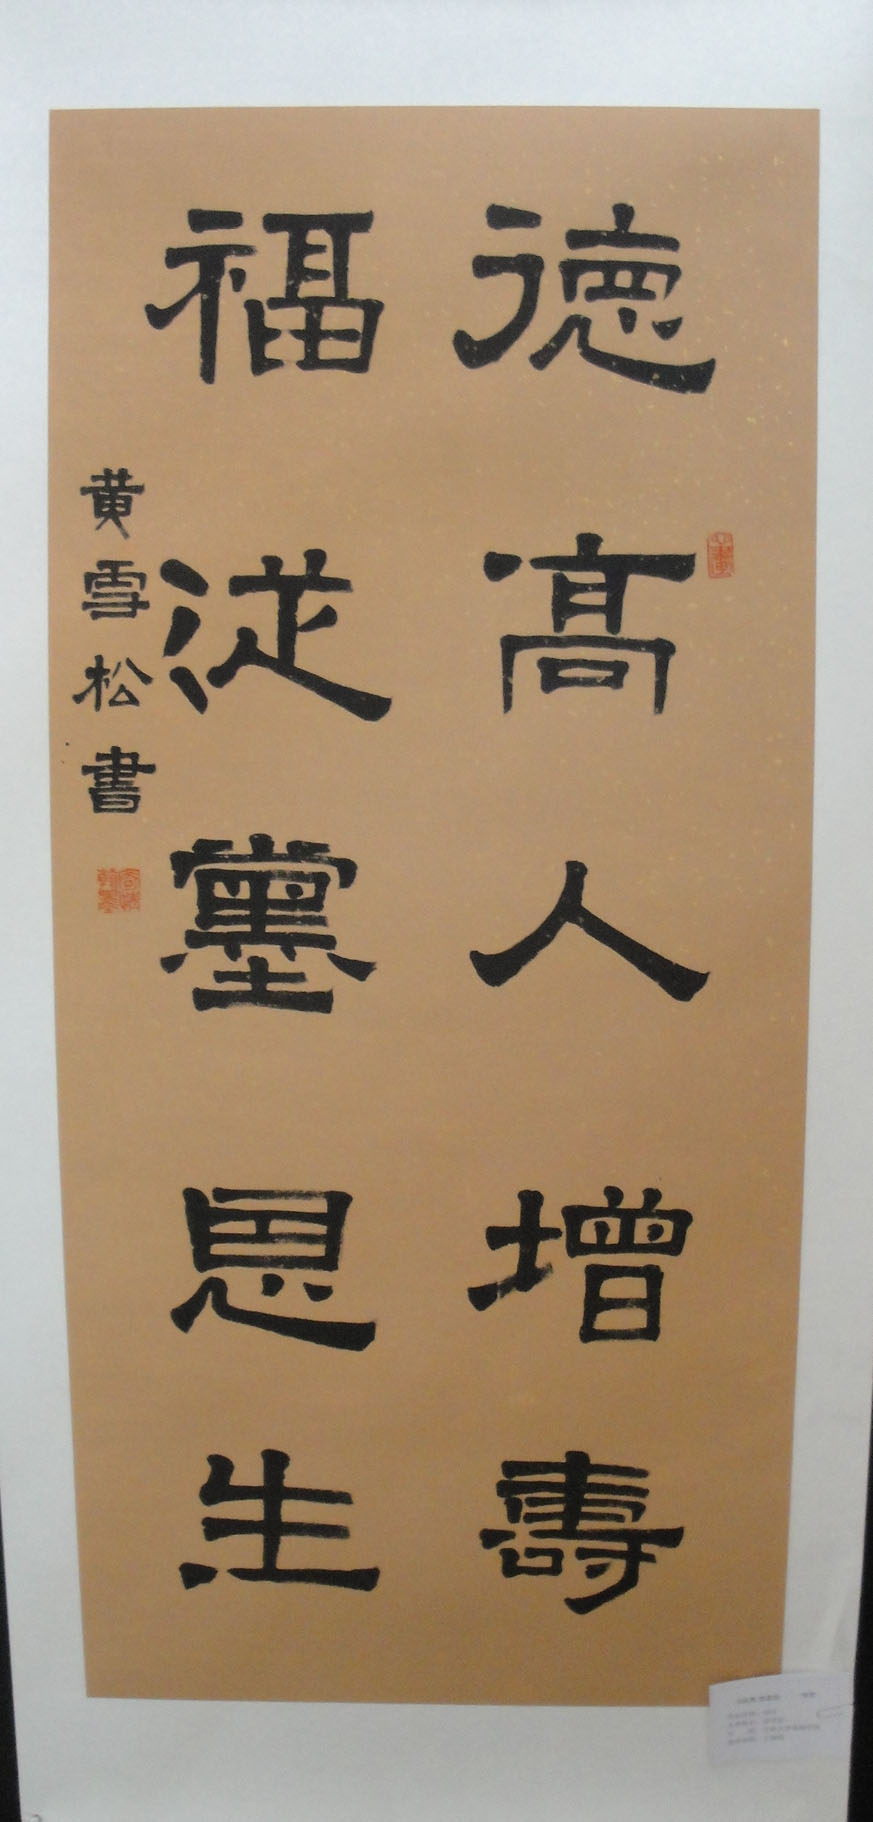 德高人增壽
福從黨恩生
黄雪松書